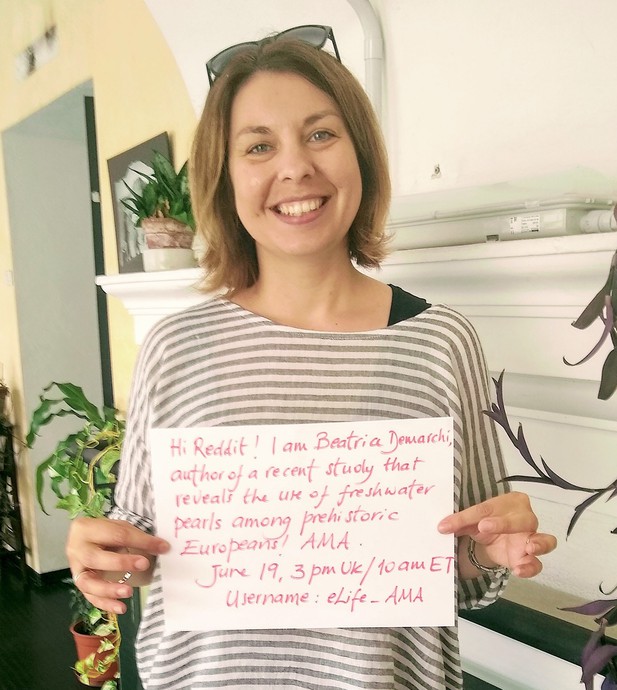 Hi Reddit! I am Beatrice Demarchi,
author of a recent study that
reveals the use of freshwater
pearls among prehistoric
Europeans! AMA.
June 19, 3 pm UK/10 am ET
Username: eLife_AMA